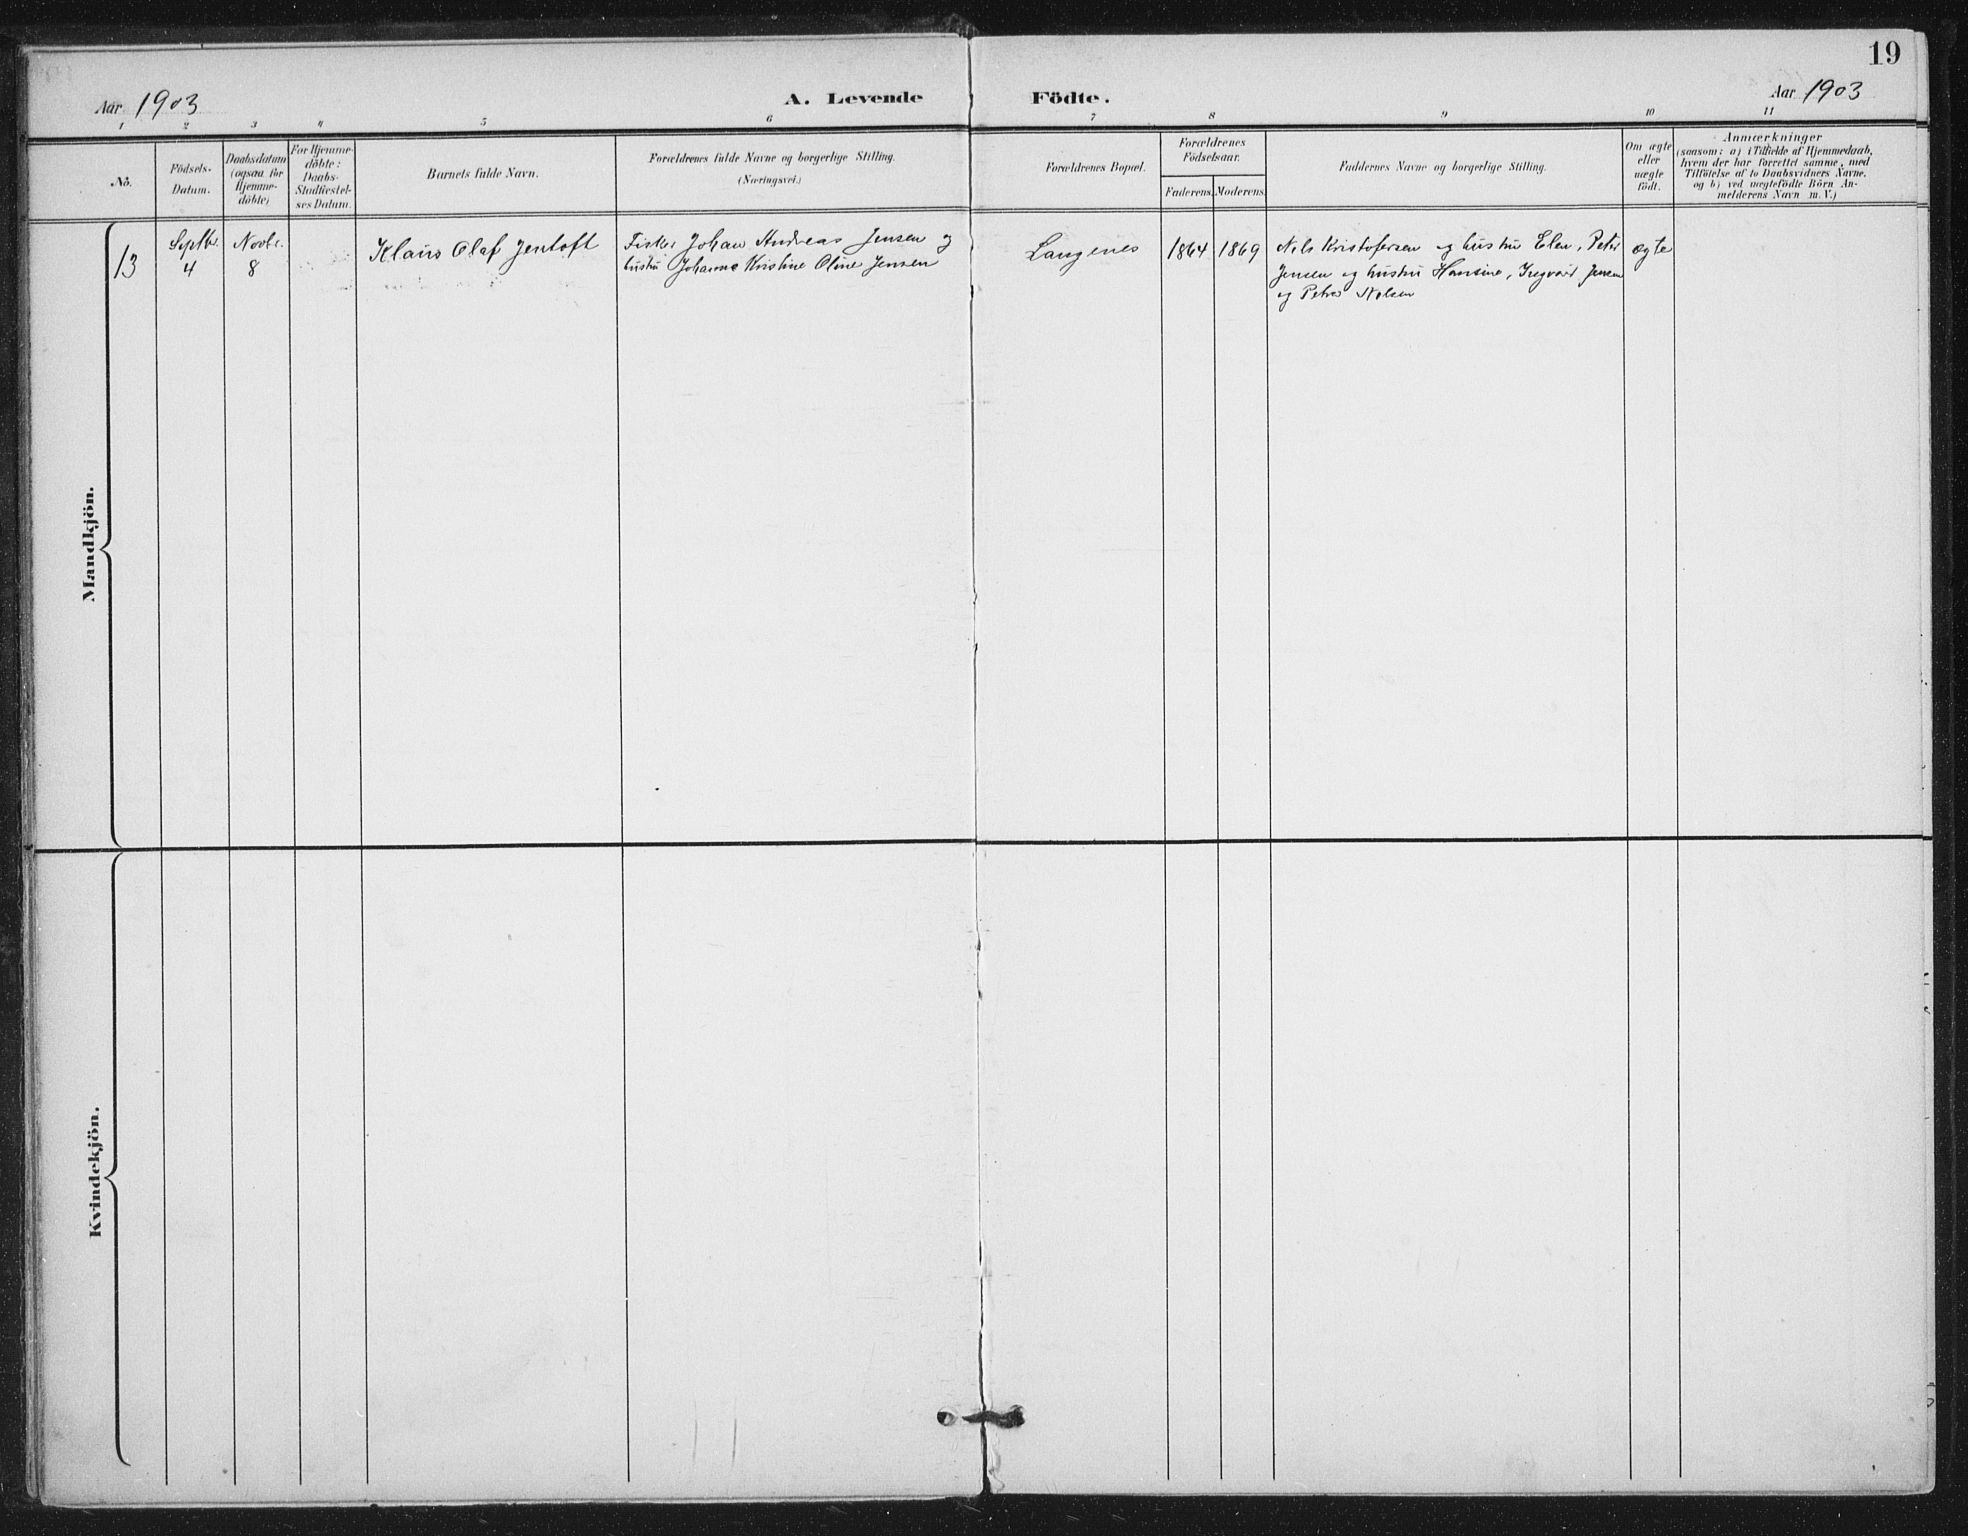 19
Aar 1903
A. Levende Födte.
Aar 1903
1 2 3 4 5 6 7 8 9 10 11
No.
Födsels-
Datum.
Daabsdatum
(ogsaa for
Hjemme-
döbte)
For Hjemme-
döbte:
Daabs-
Stadfæstel-
ses Datum.
Barnets fulde Navn.
Forældrenes fulde Navne og borgerlige Stilling.
(Næringsvei.)
Forældrenes Bopæl.
Forældrenes
Födselsaar.
Faderens. Moderens.
Faddernes Navne og borgerlige Stilling.
Om ægte
eller
uægte
födt.
Anmærkninger
(saasom: a) i Tilfælde af Hjemmedaab,
hvem der har forrettet samme, med
Tilföielse af to Daabsvidners Navne.
og b) ved uægtefödte Börn An-
melderens Navn m. V.)
Mandkjön.
13
Septbr.
4
Novbr.
8
Klaus Olaf Jentoft
Fisker Johan Andreas Jensen og
hustru Johanna Kristine Oline Jensen
Langenes
1864
1869
Nils Kristofersen og hustru Elen, Peter
Jensen og hustru Hansine, Ingvard Jensen
og Petra Nilsen
ægte
Kvindekjön.